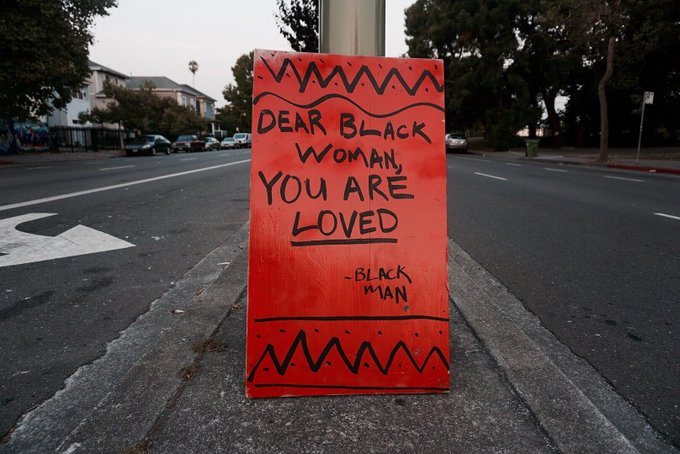 DEAR BLACK
WOMAN,
YOU ARE
LOVED
-BLACK
MAN